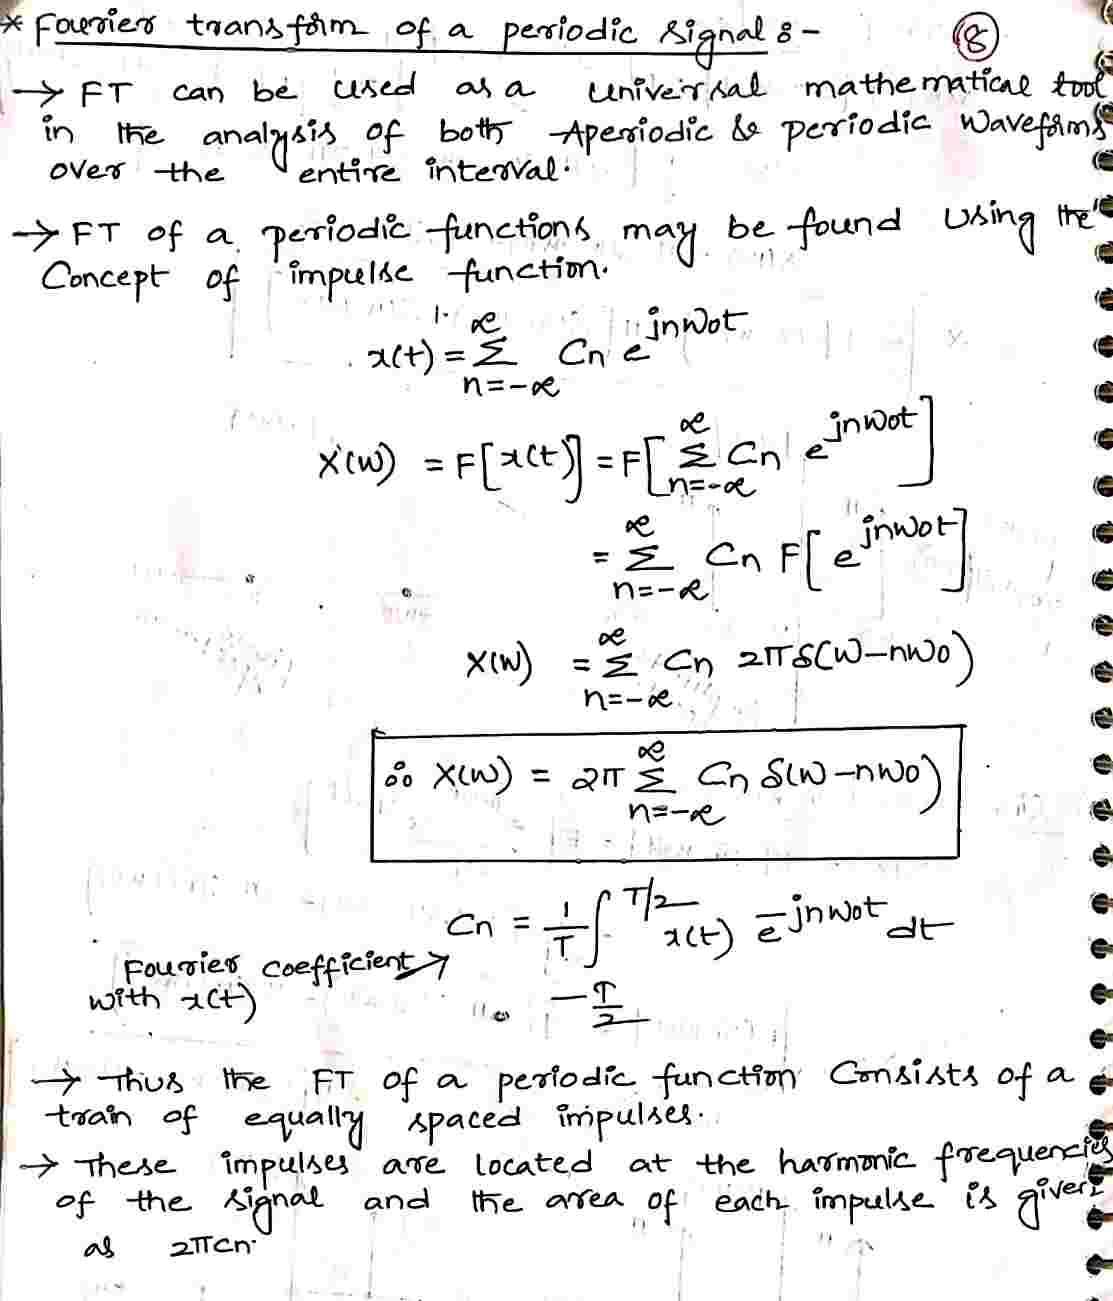 * Fourier transform of a periodic signal :-
8
→ FT can be used as a universal mathematical tool
in the analysis of both Aperiodic & periodic Waveforms
over the entire interval.
→ FT of a periodic functions may be found Using the
Concept of impulse function.
x(t) = ∞ Σ n=-∞ Cn e^{jnω0t}
X(ω) = F[x(t)] = F[∞ Σ n=-∞ Cn e^{jnω0t}]
= ∞ Σ n=-∞ Cn F[e^{jnω0t}]
X(ω) = ∞ Σ n=-∞ Cn 2πδ(ω-nω0)
∴ X(ω) = 2π ∞ Σ n=-∞ Cn δ(ω-nω0)
Cn = 1/T ∫_{-T/2}^{T/2} x(t) e^{-jnω0t} dt
Fourier coefficient →
with x(t)
→ Thus the FT of a periodic function Consists of a
train of equally spaced impulses.
→ These impulses are located at the harmonic frequencies
of the signal and the area of each impulse is given
as 2πcn.